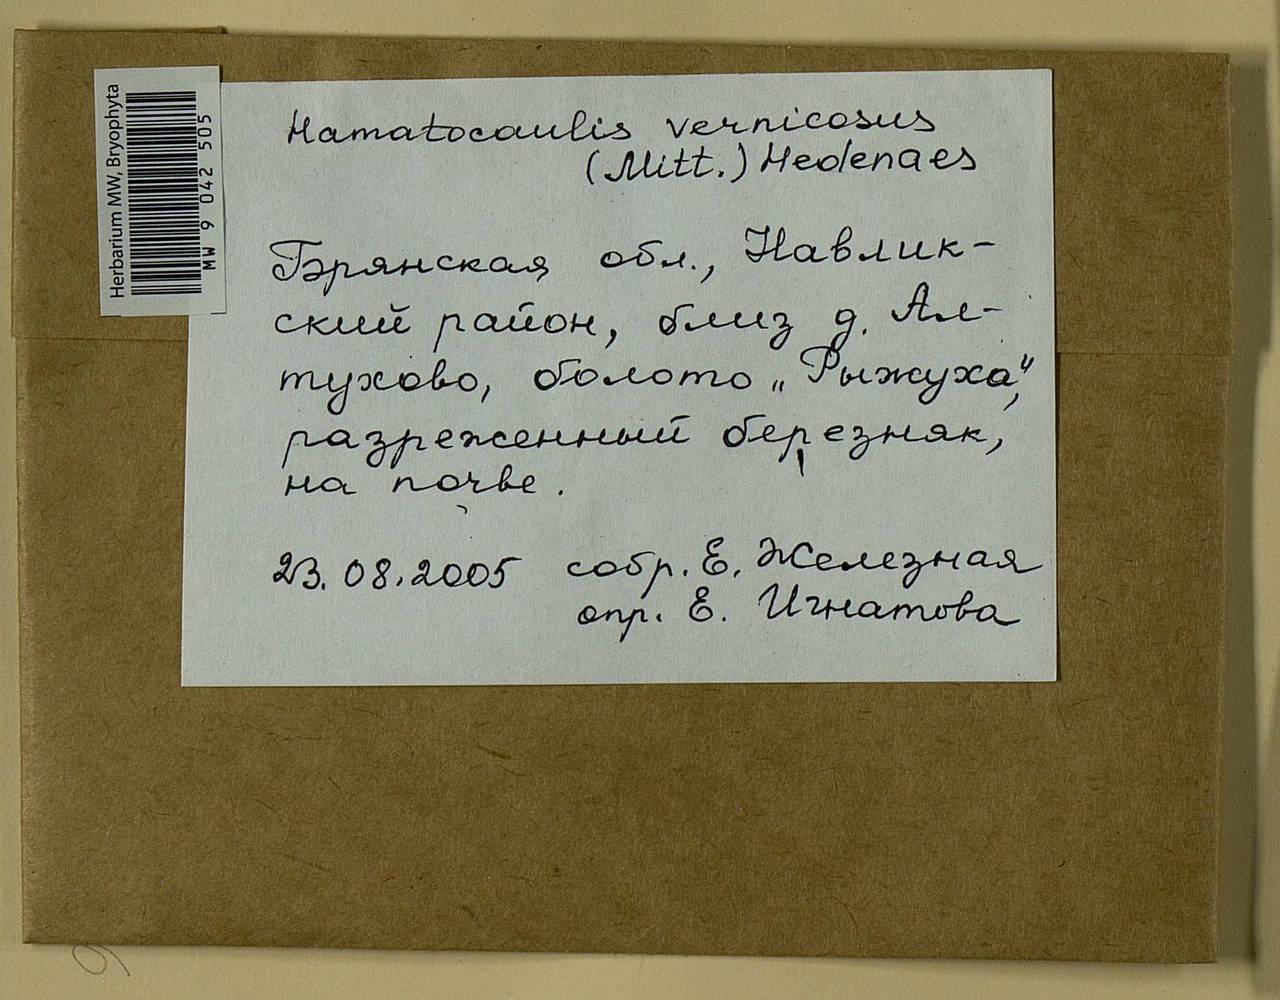 Herbarium MW, Bryophyta
MW 9 042 505
Hamatocaulis vernicosus
(Mitt.) Hedenaes
Брянская обл., Навлик-
ский район, близ д. Ал-
тухово, болото „Рыжуха",
разреженный березняк,
на почве.
23.08.2005 собр. Е. Железная
опр. Е. Игнатова